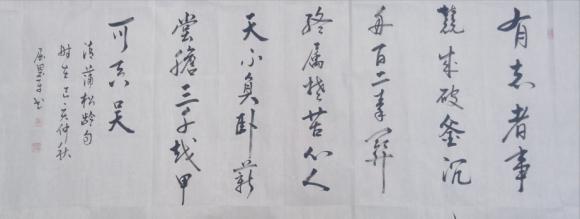 有志者事
競成破釜沉
舟百二秦關
终属楚苦心人
天不負卧薪
嘗膽三千越甲
可吞吴
清蒲松龄句
时在己亥仲秋
书